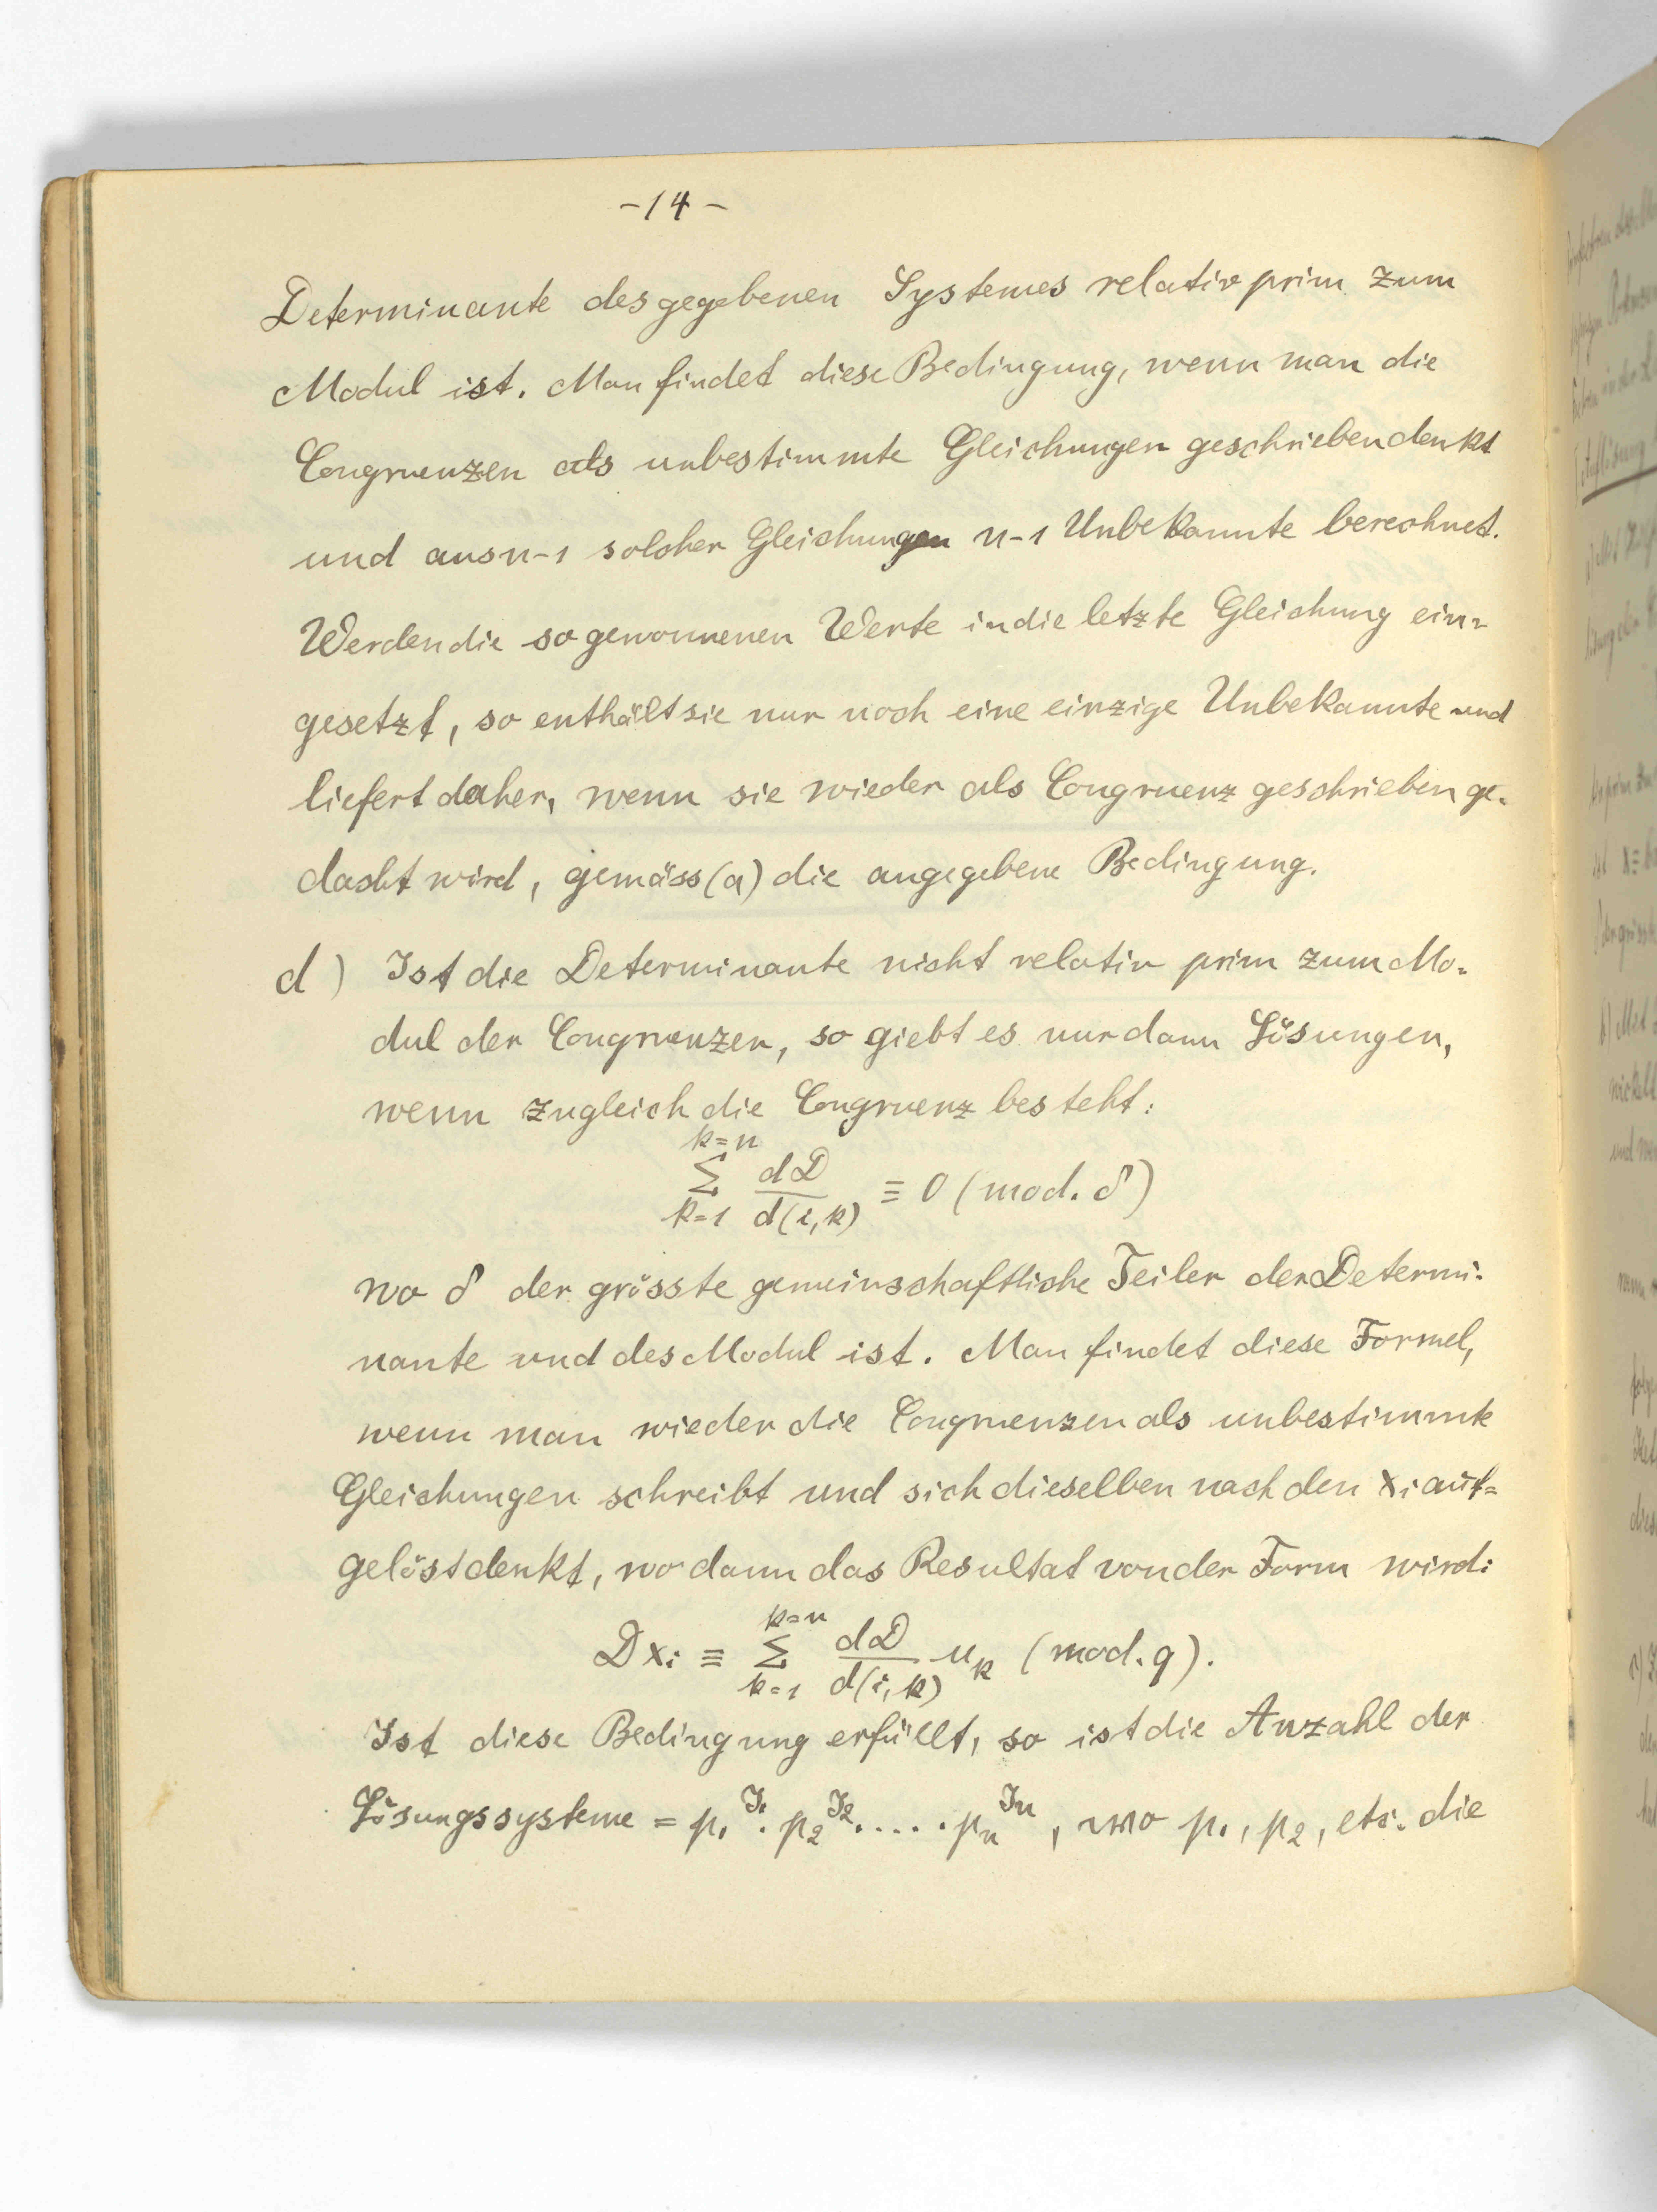 -14-
Determinante des gegebenen Systemes relativ prim zum
Modul ist. Man findet diese Bedingung, wenn man die
Congruenzen als unbestimmte Gleichungen geschrieben denkt
und aus n-1 solcher Gleichungen n-1 Unbekannte berechnet.
Werden die so gewonnenen Werte in die letzte Gleichung ein-
gesetzt, so enthält sie nur noch eine einzige Unbekannte und
liefert daher, wenn sie wieder als Congruenz geschrieben ge-
dacht wird, gemäss (a) die angegebene Bedingung.
d) Ist die Determinante nicht relativ prim zum Mo-
dul der Congruenzen, so giebt es nur dann Lösungen,
wenn zugleich die Congruenz besteht:
k=n
Σ dD
k=1 d(i,k) ≡ 0 (mod. δ)
wo δ der grösste gemeinschaftliche Teiler der Determi-
nante und des Modul ist. Man findet diese Formel,
wenn man wieder die Congruenzen als unbestimmte
Gleichungen schreibt und sich dieselben nach den xi auf-
gelöst denkt, wo dann das Resultat von der Form wird:
k=n
Dxi ≡ Σ dD uk (mod. q).
k=1 d(i,k)
Ist diese Bedingung erfüllt, so ist die Anzahl der
Lösungssysteme = p₁^J₁ . p₂^J₂ . . . . . pn^Jn, wo p₁, p₂, etc. die